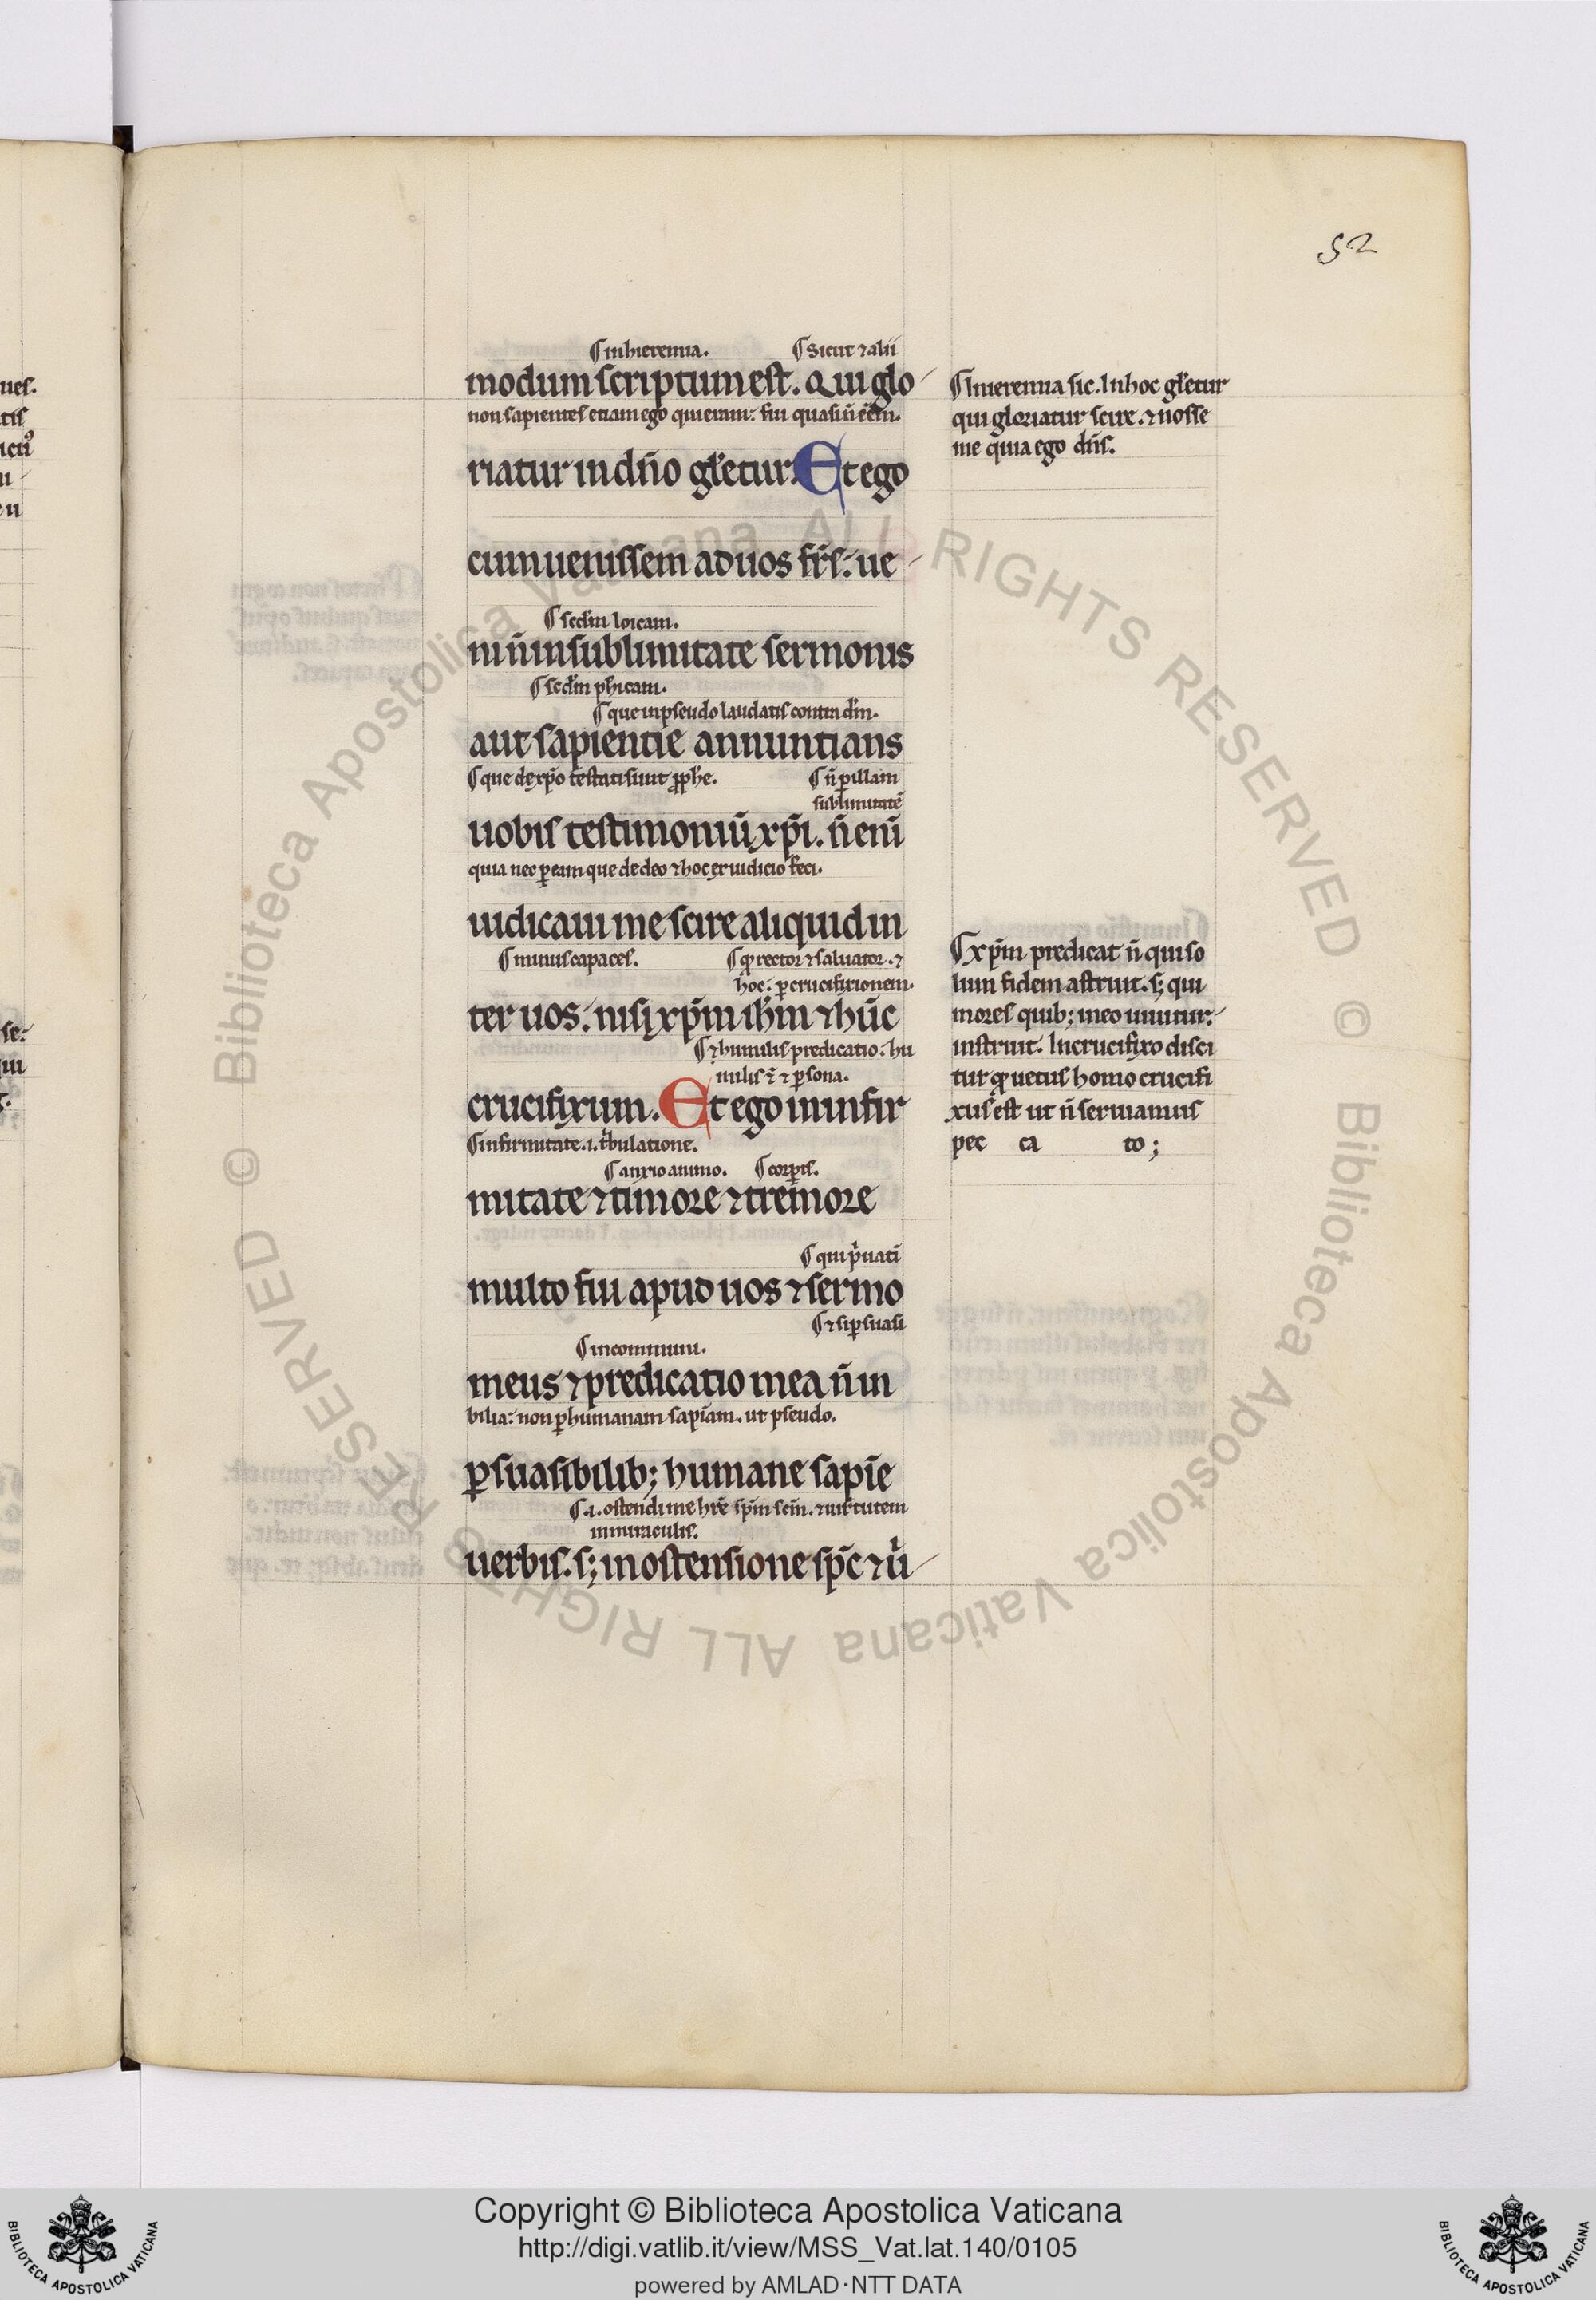 52
¶ in hieremia. ¶ Sicut ⁊ alii
modum scriptum est. Qui glo
non sapientes etiam ego qui eram: fui quasi n̄ eēm.
riatur in dn̄o gl̄etur. Et ego
cum uenissem ad uos fr̄s: ue
¶ scd̄m loicam.
ni n̄ in sublimitate sermonis
¶ scd̄m ph̄icam.
¶ que in pseudo laudatis contra dm̄.
aut sapientie annuntians
¶ que de xp̄o testati sunt ꝓph̄e. ¶ n̄ ꝑ illam
sublimitatē
uobis testimoniū xp̄i. n̄ eni̅
quia nec ꝑ eam que de deo ⁊ hoc ex iudicio feci.
iudicaui me scire aliquid in
¶ minus capaces. ¶ ꝙ rector ⁊ saluator. ⁊
hoc: ꝑ crucifixionem.
ter uos: nisi xp̄m ih̄m ⁊ hūc
¶ ⁊ humilis predicatio: hu
milis ē ⁊ ꝑsona.
crucifixum. Et ego in infir
¶ infirmitate .i. tͥbulatione.
¶ anxio animo. ¶ corꝑis.
mitate ⁊ timore ⁊ tremore
¶ qui pͥuati
multo fui apud uos ⁊ sermo
¶ ⁊ si ꝑsuasi
¶ in communi.
meus ⁊ predicatio mea n̄ in
bilia: non ꝑ humanam sapīam. ut pseudo.
ꝑsuasibilib; humane sapīe
¶ .i. ostendi me hr̄e sp̄m scm̄. ⁊ uirtutem
in miraculis.
uerbis. s; in ostensione sp̄c ⁊ uͥ
¶ In ieremia sic. In hoc gl̄etur
qui gloriatur scire. ⁊ nosse
me quia ego dn̄s.
¶ xp̄m predicat n̄ qui so
lum fidem astruit. s; qui
mores quib; in eo uiuitur:
instruit. In crucifixo disci
tur ꝙ uetus homo crucifi
xus est ut n̄ seruiamus
pec ca to;
Copyright © Biblioteca Apostolica Vaticana
http://digi.vatlib.it/view/MSS_Vat.lat.140/0105
powered by AMLAD·NTT DATA
BIBLIOTECA APOSTOLICA VATICANA
BIBLIOTECA APOSTOLICA VATICANA
© Biblioteca Apostolica Vaticana ALL RIGHTS RESERVED
© Biblioteca Apostolica Vaticana ALL RIGHTS RESERVED